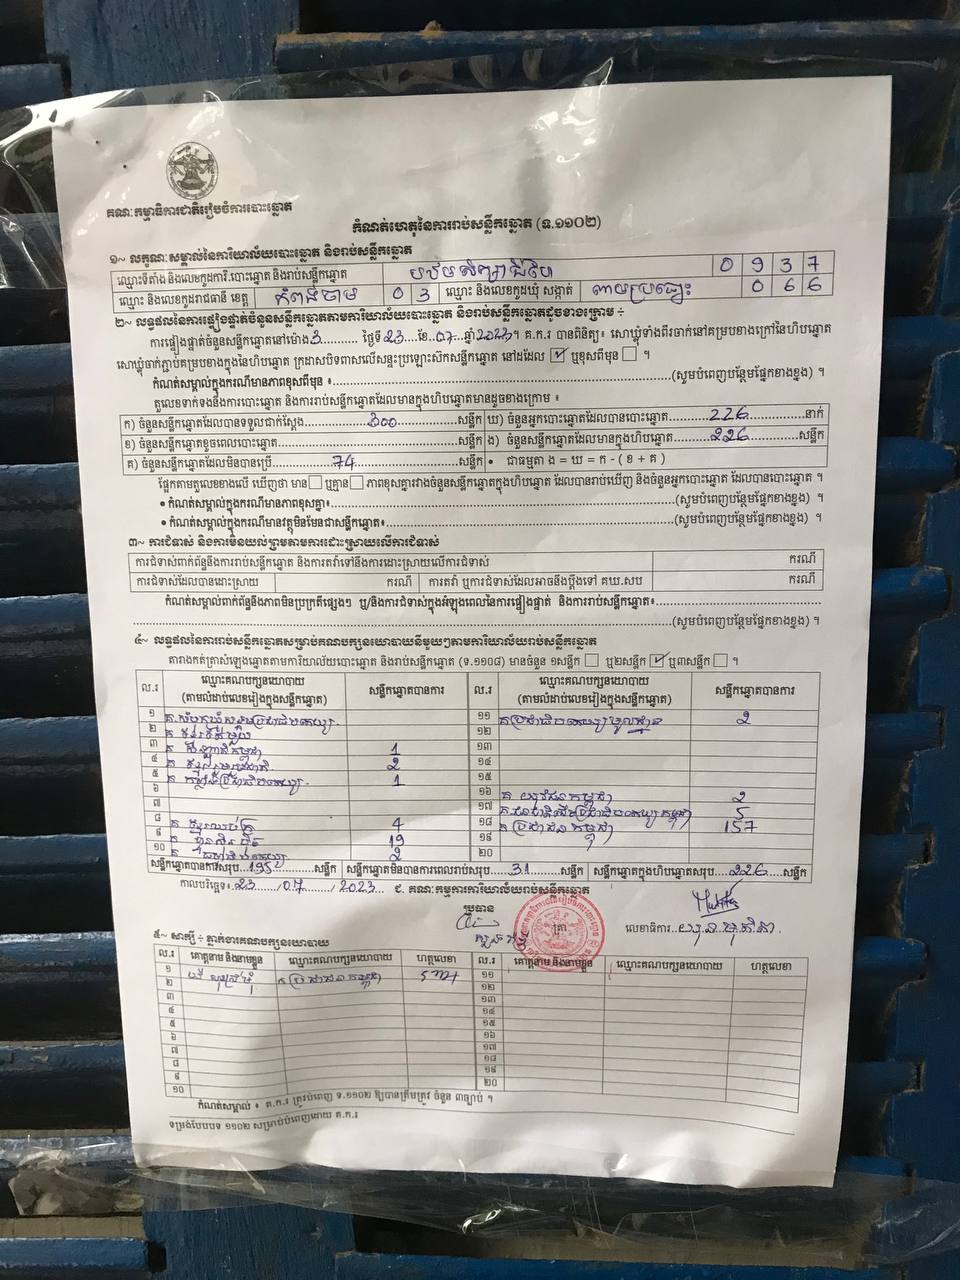 គណៈកម្មាធិការជាតិរៀបចំការបោះឆ្នោត
កំណត់ហេតុនៃការរាប់សន្លឹកឆ្នោត (ទ.១១០២)
១~ លក្ខណៈសម្គាល់នៃការិយាល័យបោះឆ្នោត និងរាប់សន្លឹកឆ្នោត
ឈ្មោះទីតាំង និងលេខកូដការិ.បោះឆ្នោត និងរាប់សន្លឹកឆ្នោត 0 9 3 7
ឈ្មោះ និងលេខកូដរាជធានី ខេត្ត កំពង់ចាម 0 3 ឈ្មោះ និងលេខកូដឃុំ សង្កាត់ 0 6 6
២~ លទ្ធផលនៃការផ្ទៀងផ្ទាត់ចំនួនសន្លឹកឆ្នោតតាមការិយាល័យបោះឆ្នោត និងរាប់សន្លឹកឆ្នោតដូចខាងក្រោម ÷
ការផ្ទៀងផ្ទាត់ចំនួនសន្លឹកឆ្នោតនៅម៉ោង 3 ថ្ងៃទី 23 ខែ 07 ឆ្នាំ 2023 ។ គ.ក.រ បានពិនិត្យ៖ សោឃ្លុំទាំងពីរចាក់នៅគម្របខាងក្រៅនៃហិបឆ្នោត
សោឃ្លុំចាក់ភ្ជាប់គម្របខាងក្នុងនៃហិបឆ្នោត ក្រដាសបិទពាសលើសន្ទះប្រឡោះស៊កសន្លឹកឆ្នោត នៅដដែល ☑ ឬខុសពីមុន ☐ ។
កំណត់សម្គាល់ក្នុងករណីមានភាពខុសពីមុន ៖ (សូមបំពេញបន្ថែមផ្នែកខាងខ្នង) ។
តួលេខទាក់ទងនឹងការបោះឆ្នោត និងការរាប់សន្លឹកឆ្នោតដែលមានក្នុងហិបឆ្នោតមានដូចខាងក្រោម ៖
ក) ចំនួនសន្លឹកឆ្នោតដែលបានទទួលជាក់ស្តែង 300 សន្លឹក ឃ) ចំនួនអ្នកបោះឆ្នោតដែលបានបោះឆ្នោត 226 នាក់
ខ) ចំនួនសន្លឹកឆ្នោតខូចពេលបោះឆ្នោត សន្លឹក ង) ចំនួនសន្លឹកឆ្នោតដែលមានក្នុងហិបឆ្នោត 226 សន្លឹក
គ) ចំនួនសន្លឹកឆ្នោតដែលមិនបានប្រើ 74 សន្លឹក • ជាធម្មតា ង = ឃ = ក - ( ខ + គ )
ផ្អែកតាមតួលេខខាងលើ ឃើញថា មាន ☐ ឬគ្មាន ☐ ភាពខុសគ្នារវាងចំនួនសន្លឹកឆ្នោតក្នុងហិបឆ្នោត ដែលបានរាប់ឃើញ និងចំនួនអ្នកបោះឆ្នោត ដែលបានបោះឆ្នោត ។
• កំណត់សម្គាល់ក្នុងករណីមានភាពខុសគ្នា៖ (សូមបំពេញបន្ថែមផ្នែកខាងខ្នង) ។
• កំណត់សម្គាល់ក្នុងករណីមានវត្ថុមិនមែនជាសន្លឹកឆ្នោត៖ (សូមបំពេញបន្ថែមផ្នែកខាងខ្នង) ។
៣~ ការជំទាស់ និងការមិនយល់ព្រមតាមការដោះស្រាយលើការជំទាស់
ការជំទាស់ពាក់ព័ន្ធនឹងការរាប់សន្លឹកឆ្នោត និងការតវ៉ាទៅនឹងការដោះស្រាយលើការជំទាស់ ករណី
ការជំទាស់ដែលបានដោះស្រាយ ករណី ការតវ៉ា ឬការជំទាស់ដែលអាចនឹងប្តឹងទៅ គឃ.សប ករណី
កំណត់សម្គាល់ពាក់ព័ន្ធនឹងភាពមិនប្រក្រតីផ្សេងៗ ឬ/និងការជំទាស់ក្នុងអំឡុងពេលនៃការផ្ទៀងផ្ទាត់ និងការរាប់សន្លឹកឆ្នោត៖
(សូមបំពេញបន្ថែមផ្នែកខាងខ្នង) ។
៤~ លទ្ធផលនៃការរាប់សន្លឹកឆ្នោតសម្រាប់គណបក្សនយោបាយនីមួយៗតាមការិយាល័យរាប់សន្លឹកឆ្នោត
តារាងកត់ត្រាសំឡេងឆ្នោតតាមការិយាល័យបោះឆ្នោត និងរាប់សន្លឹកឆ្នោត (ទ.១១០៨) មានចំនួន ១សន្លឹក ☐ ឬ២សន្លឹក ☑ ឬ៣សន្លឹក ☐ ។
ល.រ ឈ្មោះគណបក្សនយោបាយ (តាមលំដាប់លេខរៀងក្នុងសន្លឹកឆ្នោត) សន្លឹកឆ្នោតបានការ ល.រ ឈ្មោះគណបក្សនយោបាយ (តាមលំដាប់លេខរៀងក្នុងសន្លឹកឆ្នោត) សន្លឹកឆ្នោតបានការ
១ ១១ គ ប្រជាធិបតេយ្យមូលដ្ឋាន 2
២ ១២
៣ 1 ១៣
៤ 2 ១៤
៥ 1 ១៥
៦ ១៦ គ យុវជនកម្ពុជា 2
៧ ១៧ 5
៨ 4 ១៨ គ ប្រជាជនកម្ពុជា 157
៩ 19 ១៩
១០ 2 ២០
សន្លឹកឆ្នោតបានការសរុប 195 សន្លឹក សន្លឹកឆ្នោតមិនបានការពេលរាប់សរុប 31 សន្លឹក សន្លឹកឆ្នោតក្នុងហិបឆ្នោតសរុប 226 សន្លឹក
កាលបរិច្ឆេទ៖ 23 / 07 / 2023 ជ. គណៈកម្មការការិយាល័យរាប់សន្លឹកឆ្នោត
ប្រធាន ត្រា លេខាធិការ
៥~ សាក្សី ÷ ភ្នាក់ងារគណបក្សនយោបាយ
ល.រ គោត្តនាម និងនាមខ្លួន ឈ្មោះគណបក្សនយោបាយ ហត្ថលេខា ល.រ គោត្តនាម និងនាមខ្លួន ឈ្មោះគណបក្សនយោបាយ ហត្ថលេខា
១ គ ប្រជាជនកម្ពុជា ១១
២ ១២
៣ ១៣
៤ ១៤
៥ ១៥
៦ ១៦
៧ ១៧
៨ ១៨
៩ ១៩
១០ ២០
កំណត់សម្គាល់ ៖ គ.ក.រ ត្រូវបំពេញ ទ.១១០២ ឱ្យបានត្រឹមត្រូវ ចំនួន ៣ច្បាប់ ។
ទម្រង់បែបបទ ១១០២ សម្រាប់បំពេញដោយ គ.ក.រ